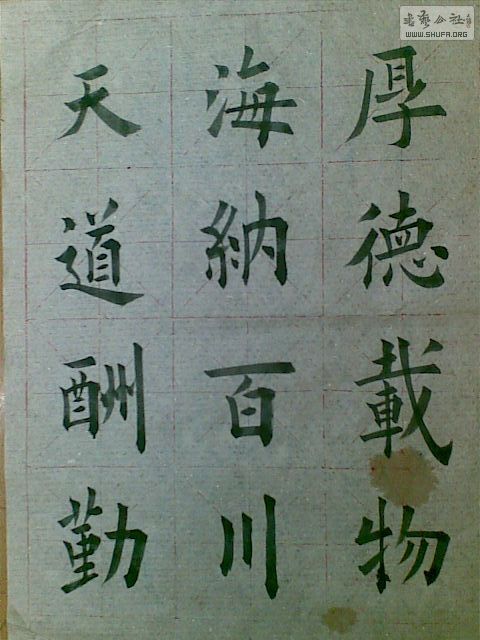 厚德載物
海納百川
天道酬勤
书艺公社
WWW.SHUFA.ORG